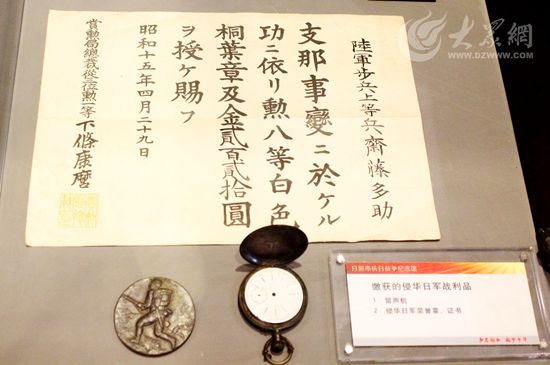 陸軍步兵上等兵齋藤多助
支那事變ニ於ケル
功ニ依リ勲八等白色
桐葉章及金貳百貳拾圓
ヲ授ケ賜フ
昭和十五年四月二十九日
賞勲局總裁從三位勲一等下條康麿
大眾網
WWW.DZWWW.COM
日照市抗日战争纪念馆
缴获的侵华日军战利品
1 留声机
2、侵华日军荣誉章、证书